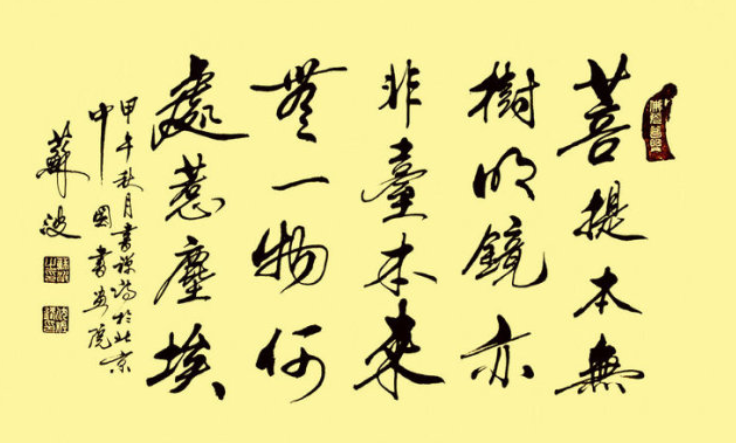 菩提本無
樹明鏡亦
非臺本来
無一物何
處惹塵埃
甲午秋月書禅偈於北京
中国書画院
蘇波